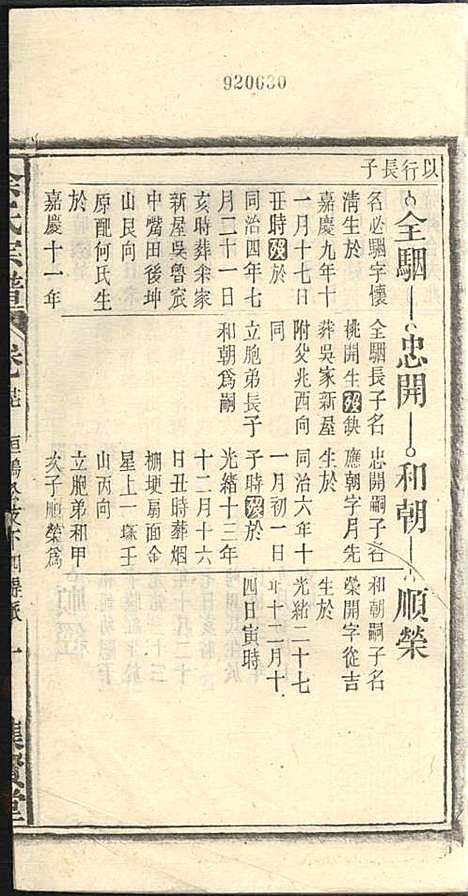 920630
以行長子
全駟
忠開
和朝
順榮
名必駟字懷
清生於
嘉慶九年十
一月十七日
丑時歿於
同治四年七
月二十一日
亥時葬余家
新屋吳魯宸
中嘴田後坤
山艮向
原配何氏生
於
嘉慶十一年
全駟長子名
桃開生歿缺
葬吳家新屋
附父兆酉向
同
立胞弟長子
和朝爲嗣
忠開嗣子名
應朝字月先
生於
同治六年十
一月初一日
子時歿於
光緒十三年
十二月十六
日丑時葬烟
棚埂扇面金
星上一塜壬
山丙向
立胞弟和甲
次子順榮爲
和朝嗣子名
榮開字從吉
生於
光緒二十七
年十二月十
四日寅時
氏宗譜